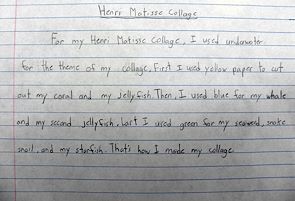 Henri Matisse Collage
For my Henri Matisse Collage, I used underwater
for the theme of my collage, First I used yellow paper to cut
out my coral and my jellyfish. Then, I used blue for my whale
and my second jellyfish. Last I used green for my seaweed, snake
snail, and my starfish. That's how I made my collage